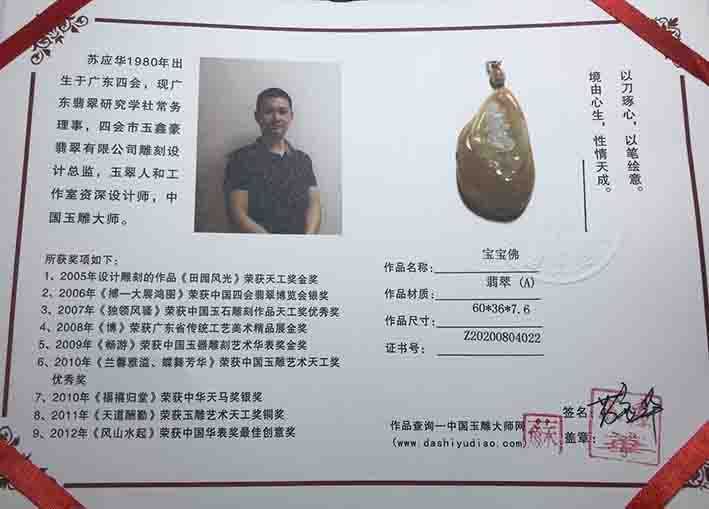 苏应华1980年出
生于广东四会，现广
东翡翠研究学社常务
理事，四会市玉鑫豪
翡翠有限公司雕刻设
计总监，玉翠人和工
作室资深设计师，中
国玉雕大师。
所获奖项如下：
1、2005年设计雕刻的作品《田园风光》荣获天工奖金奖
2、2006年《搏一大展鸿图》荣获中国四会翡翠博览会银奖
3、2007年《独领风骚》荣获中国玉石雕刻作品天工奖优秀奖
4、2008年《博》荣获广东省传统工艺美术精品展金奖
5、2009年《畅游》荣获中国玉器雕刻艺术华表奖金奖
6、2010年《兰馨雅溢、蝶舞芳华》荣获中国玉雕艺术天工奖
优秀奖
7、2010年《福禧归堂》荣获中华天马奖银奖
8、2011年《天道酬勤》荣获玉雕艺术天工奖铜奖
9、2012年《风山水起》荣获中国华表奖最佳创意奖
以刀琢心，以笔绘意。
境由心生，性情天成。
作品名称：宝宝佛
作品材质：翡翠 (A)
作品尺寸：60*36*7.6
证书号：Z20200804022
签名：
盖章：
作品查询—中国玉雕大师网
(www.dashiyudiao.com)